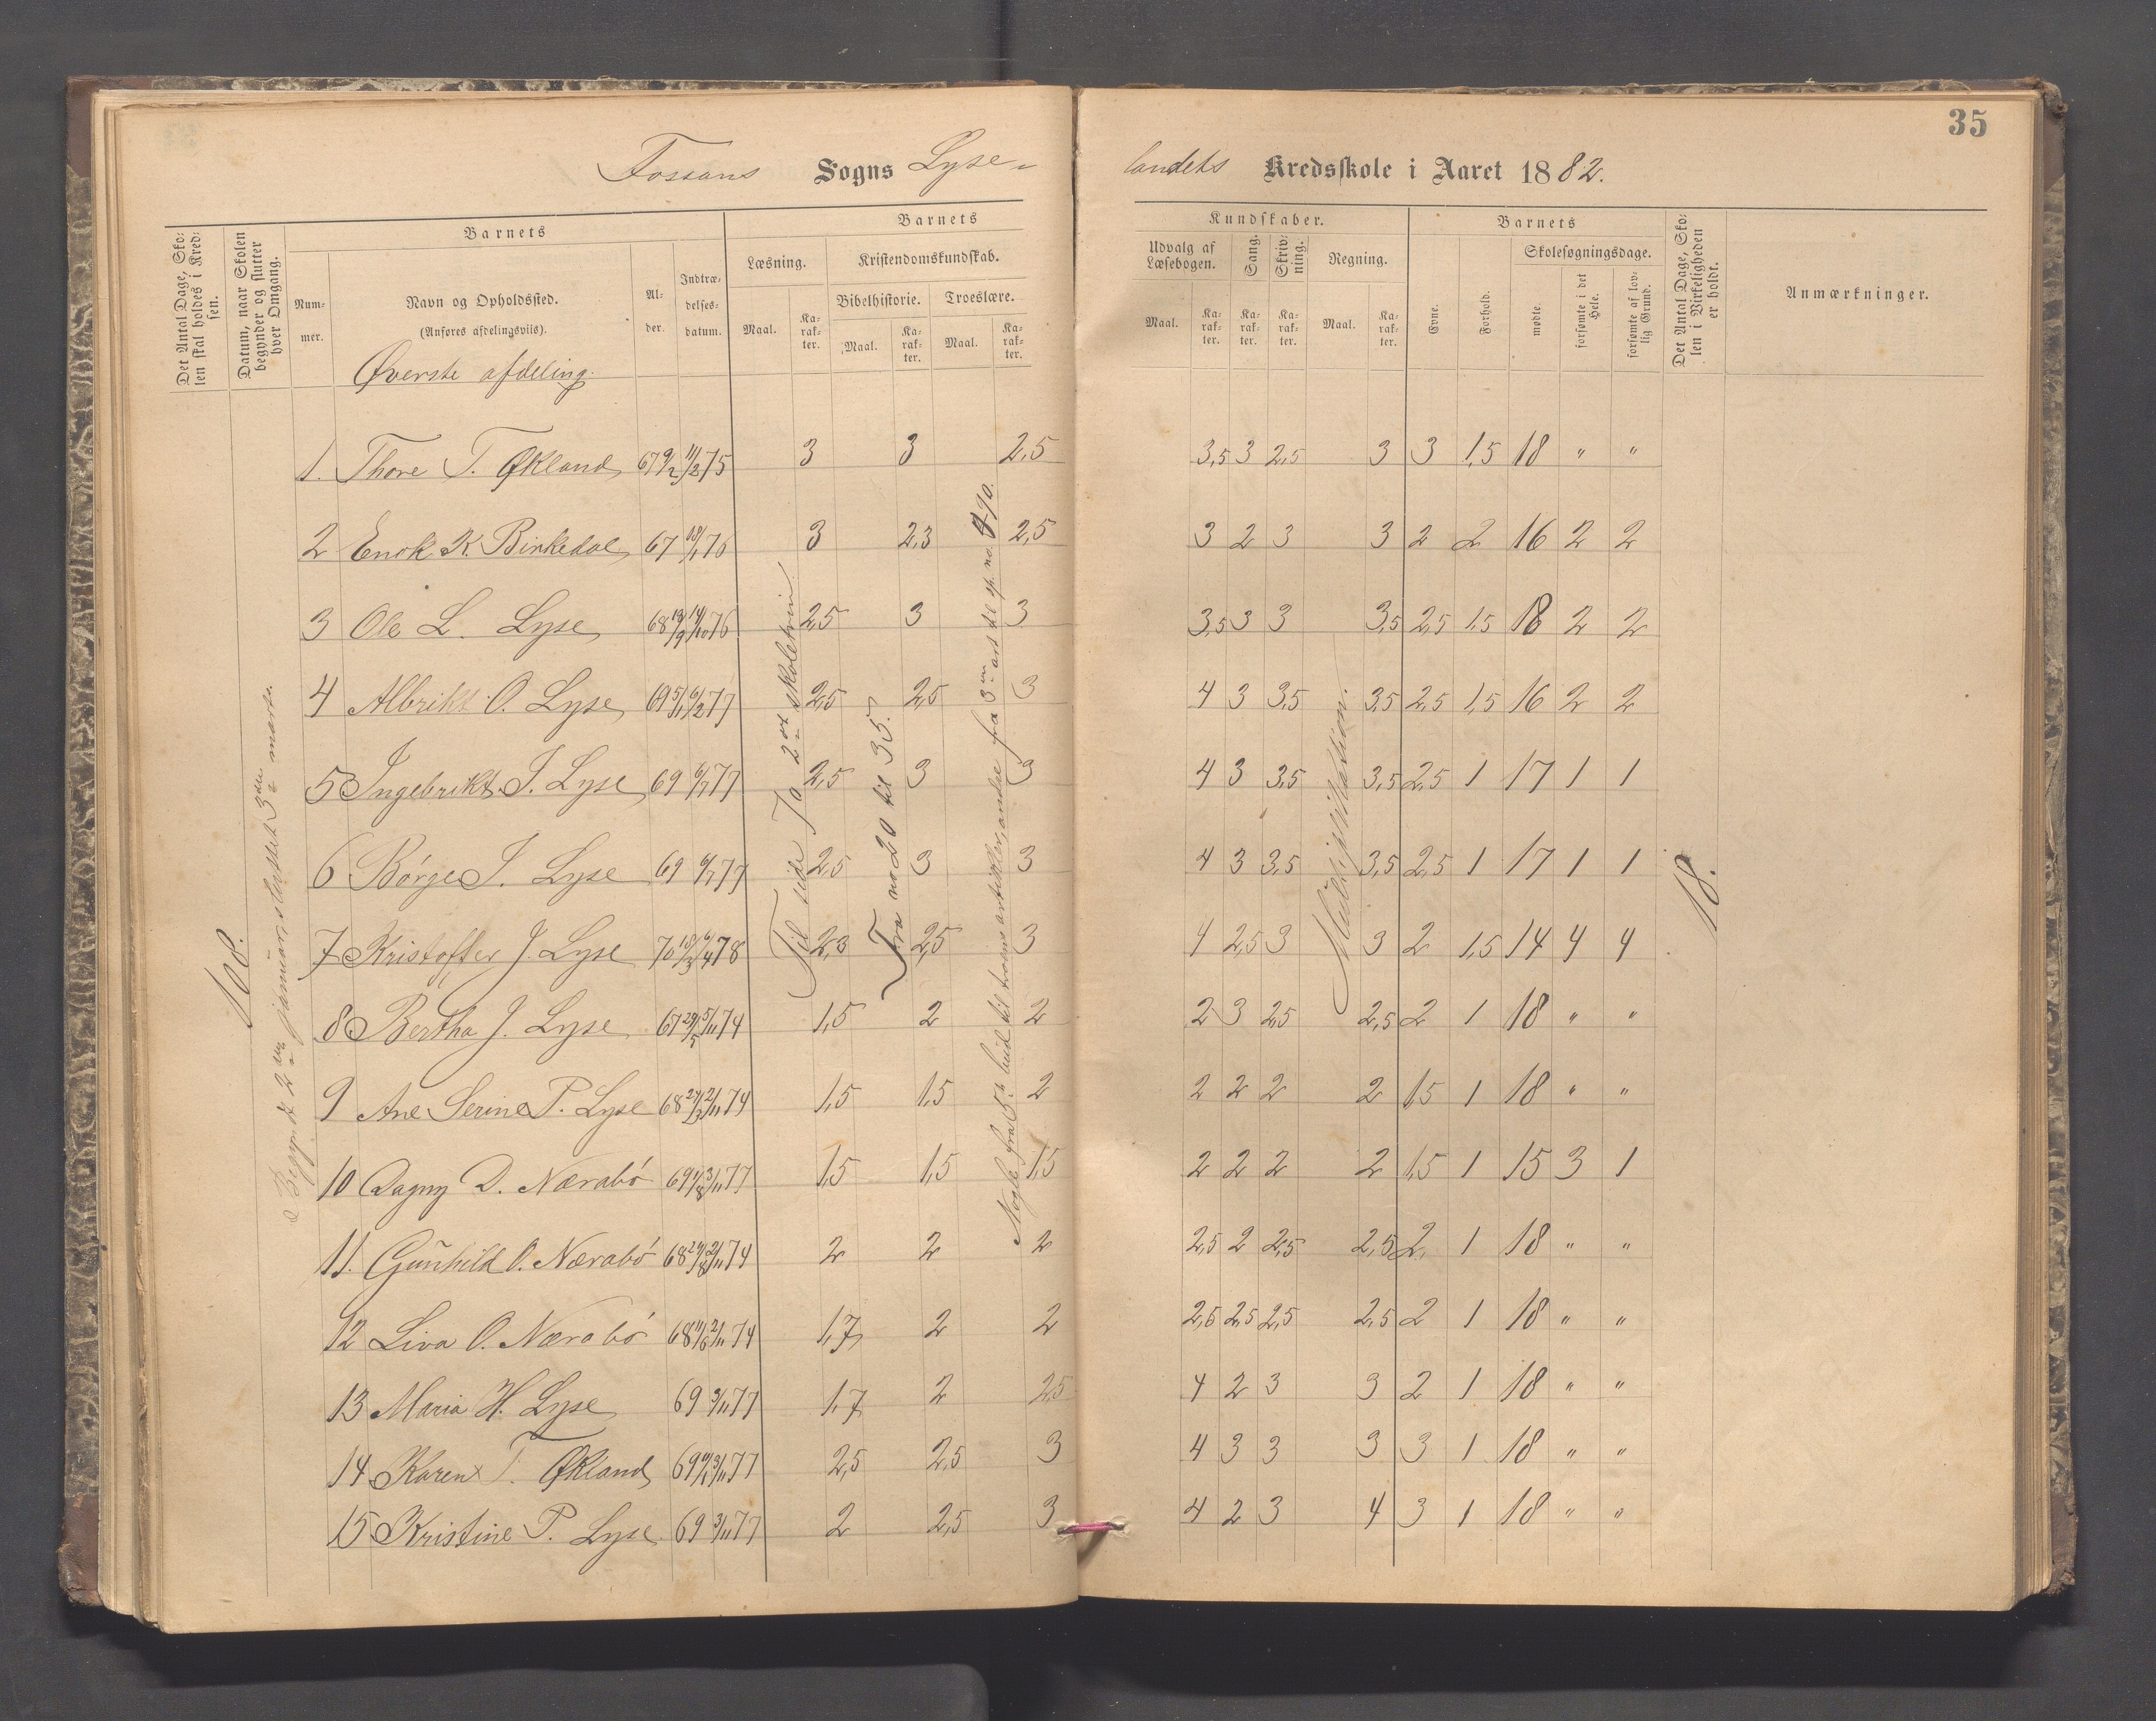 35
Fossans Sogns Lyse-
landets Kredsskole i Aaret 1882.
Det Antal Dage, Skolen skal holdes i Kredsen.
Datum, naar Skolen begynder og slutter hver Omgang.
Barnets
Nummer.
Navn og Opholdssted.
(Anføres afdelingsviis).
Alder.
Indtrædelsesdatum.
Barnets
Læsning.
Kristendomskundskab.
Bibelhistorie. Troeslære.
Maal. Karakter. Maal. Karakter. Maal. Karakter.
Kundskaber.
Udvalg af Læsebogen.
Sang.
Skrivning.
Regning.
Maal. Karakter. Karakter. Karakter. Maal. Karakter.
Barnets
Evne.
Forhold.
Skolesøgningsdage.
mødte
forsømte i det Hele.
forsømte af lovlig Grund.
Det Antal Dage, Skolen i Virkeligheden er holdt.
Anmærkninger.
Øverste afdeling.
1. Thore T. Økland 67 9/2 11/2 75 3 3 2,5 3,5 3 2,5 3 3 1,5 18 " "
2 Enok K. Birkedal 67 18/1 76 3 2,3 2,5 3 2 3 3 2 2 16 2 2
3 Ole L. Lyse 68 19/9 14/10 76 2,5 3 3 3,5 3 3 3,5 2,5 1,5 18 2 2
4 Albrikt O. Lyse 69 5/1 6/2 77 2,5 2,5 3 4 3 3,5 3,5 2,5 1,5 16 2 2
5 Ingebrikt J. Lyse 69 6/7 77 2,5 3 3 4 3 3,5 3,5 2,5 1 17 1 1
6 Börge J. Lyse 69 6/7 77 2,5 3 3 4 3 3,5 3,5 2,5 1 17 1 1
7 Kristoffer J. Lyse 70 10/3 6/4 78 2,3 2,5 3 4 2,5 3 3 2 1,5 14 4 4
8 Bertha J. Lyse 67 29/5 5/11 74 1,5 2 2 2 3 2,5 2,5 2 1 18 " "
9 Ane Serine P. Lyse 68 27/2 2/11 74 1,5 1,5 2 2 2 2 2 1,5 1 18 " "
10 Dagny D. Nærabö 69 1/8 3/11 77 1,5 1,5 1,5 2 2 2 2 1,5 1 15 3 1
11. Gunhild O. Nærabö 68 24/8 2/11 74 2 2 2 2,5 2 2,5 2,5 2 1 18 " "
12 Liva O. Nærabö 68 11/6 2/11 74 1,7 2 2 2,5 2,5 2,5 2,5 2 1 18 " "
13 Maria H. Lyse 69 3/11 77 1,7 2 2,5 4 2 3 3 2 1 18 " "
14 Karen T. Økland 69 3/11 77 2,5 2,5 3 4 3 3 3 3 1 18 " "
15 Kristine P. Lyse 69 3/11 77 2 2,5 3 4 2 3 4 3 1 18 " "
108.
Begyndt 2den januar, sluttet 3die marts.
Til side 70 2det skoletrin
Fra no 20 til 35.
Nogle fra 5te bud til troens artikler, andre fra 3die art. til sp. no. 490.
Multiplikation.
18.